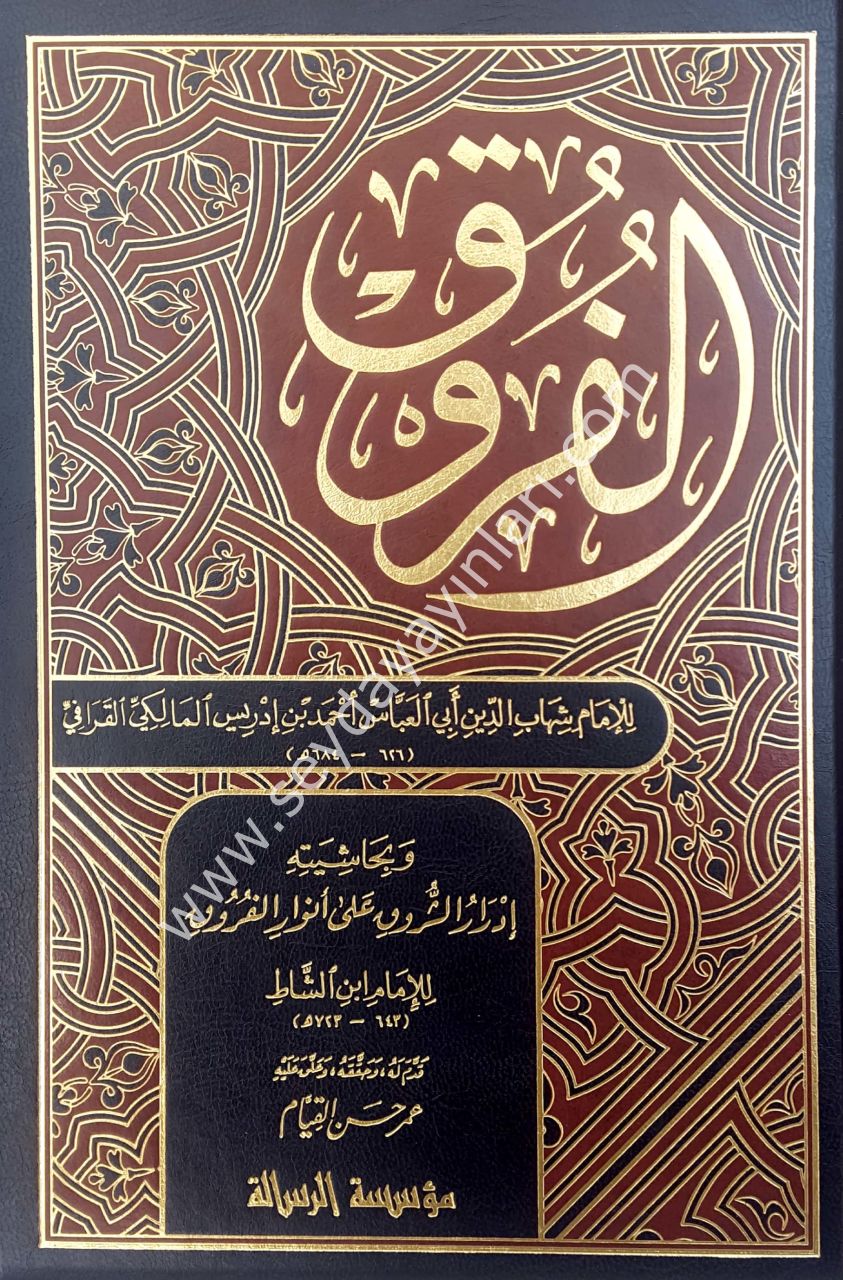 الفُرُوق
لِلإمَام شِهَابِ الدِّينِ أَبِي العَبَّاسِ أحْمَد بْنِ إدْرِيس المَالِكِيِّ القَرَافِيِّ
(٦٢٦ – ٦٨٤ه)
وَبحَاشِيَتِهِ
إدْرَارُ الشُّرُوقِ عَلَىٰ أنوَارِ الفُرُوقِ
لِلإمَامِ ابْنِ الشَّاطِ
(٦٤٣ – ٧٢٣ه)
قَدَّمَ لَهُ، وَحَقَّقَهُ، وَعَلَّقَ عَلَيْهِ
عمر حسَن القِيَّام
مؤسسة الرسالة
www.seydayayinlari.com